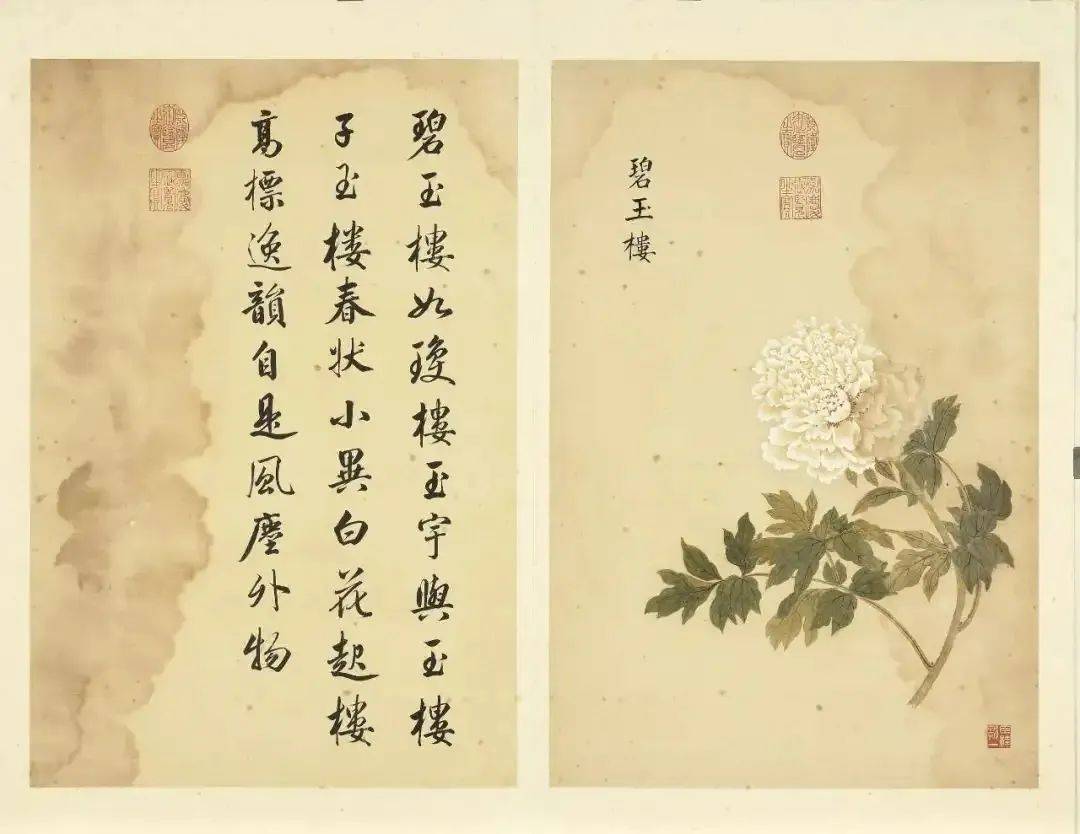 碧玉樓
碧玉樓如瓊樓玉宇與玉樓
子玉楼春狀小異白花起樓
高標逸韻自是風塵外物